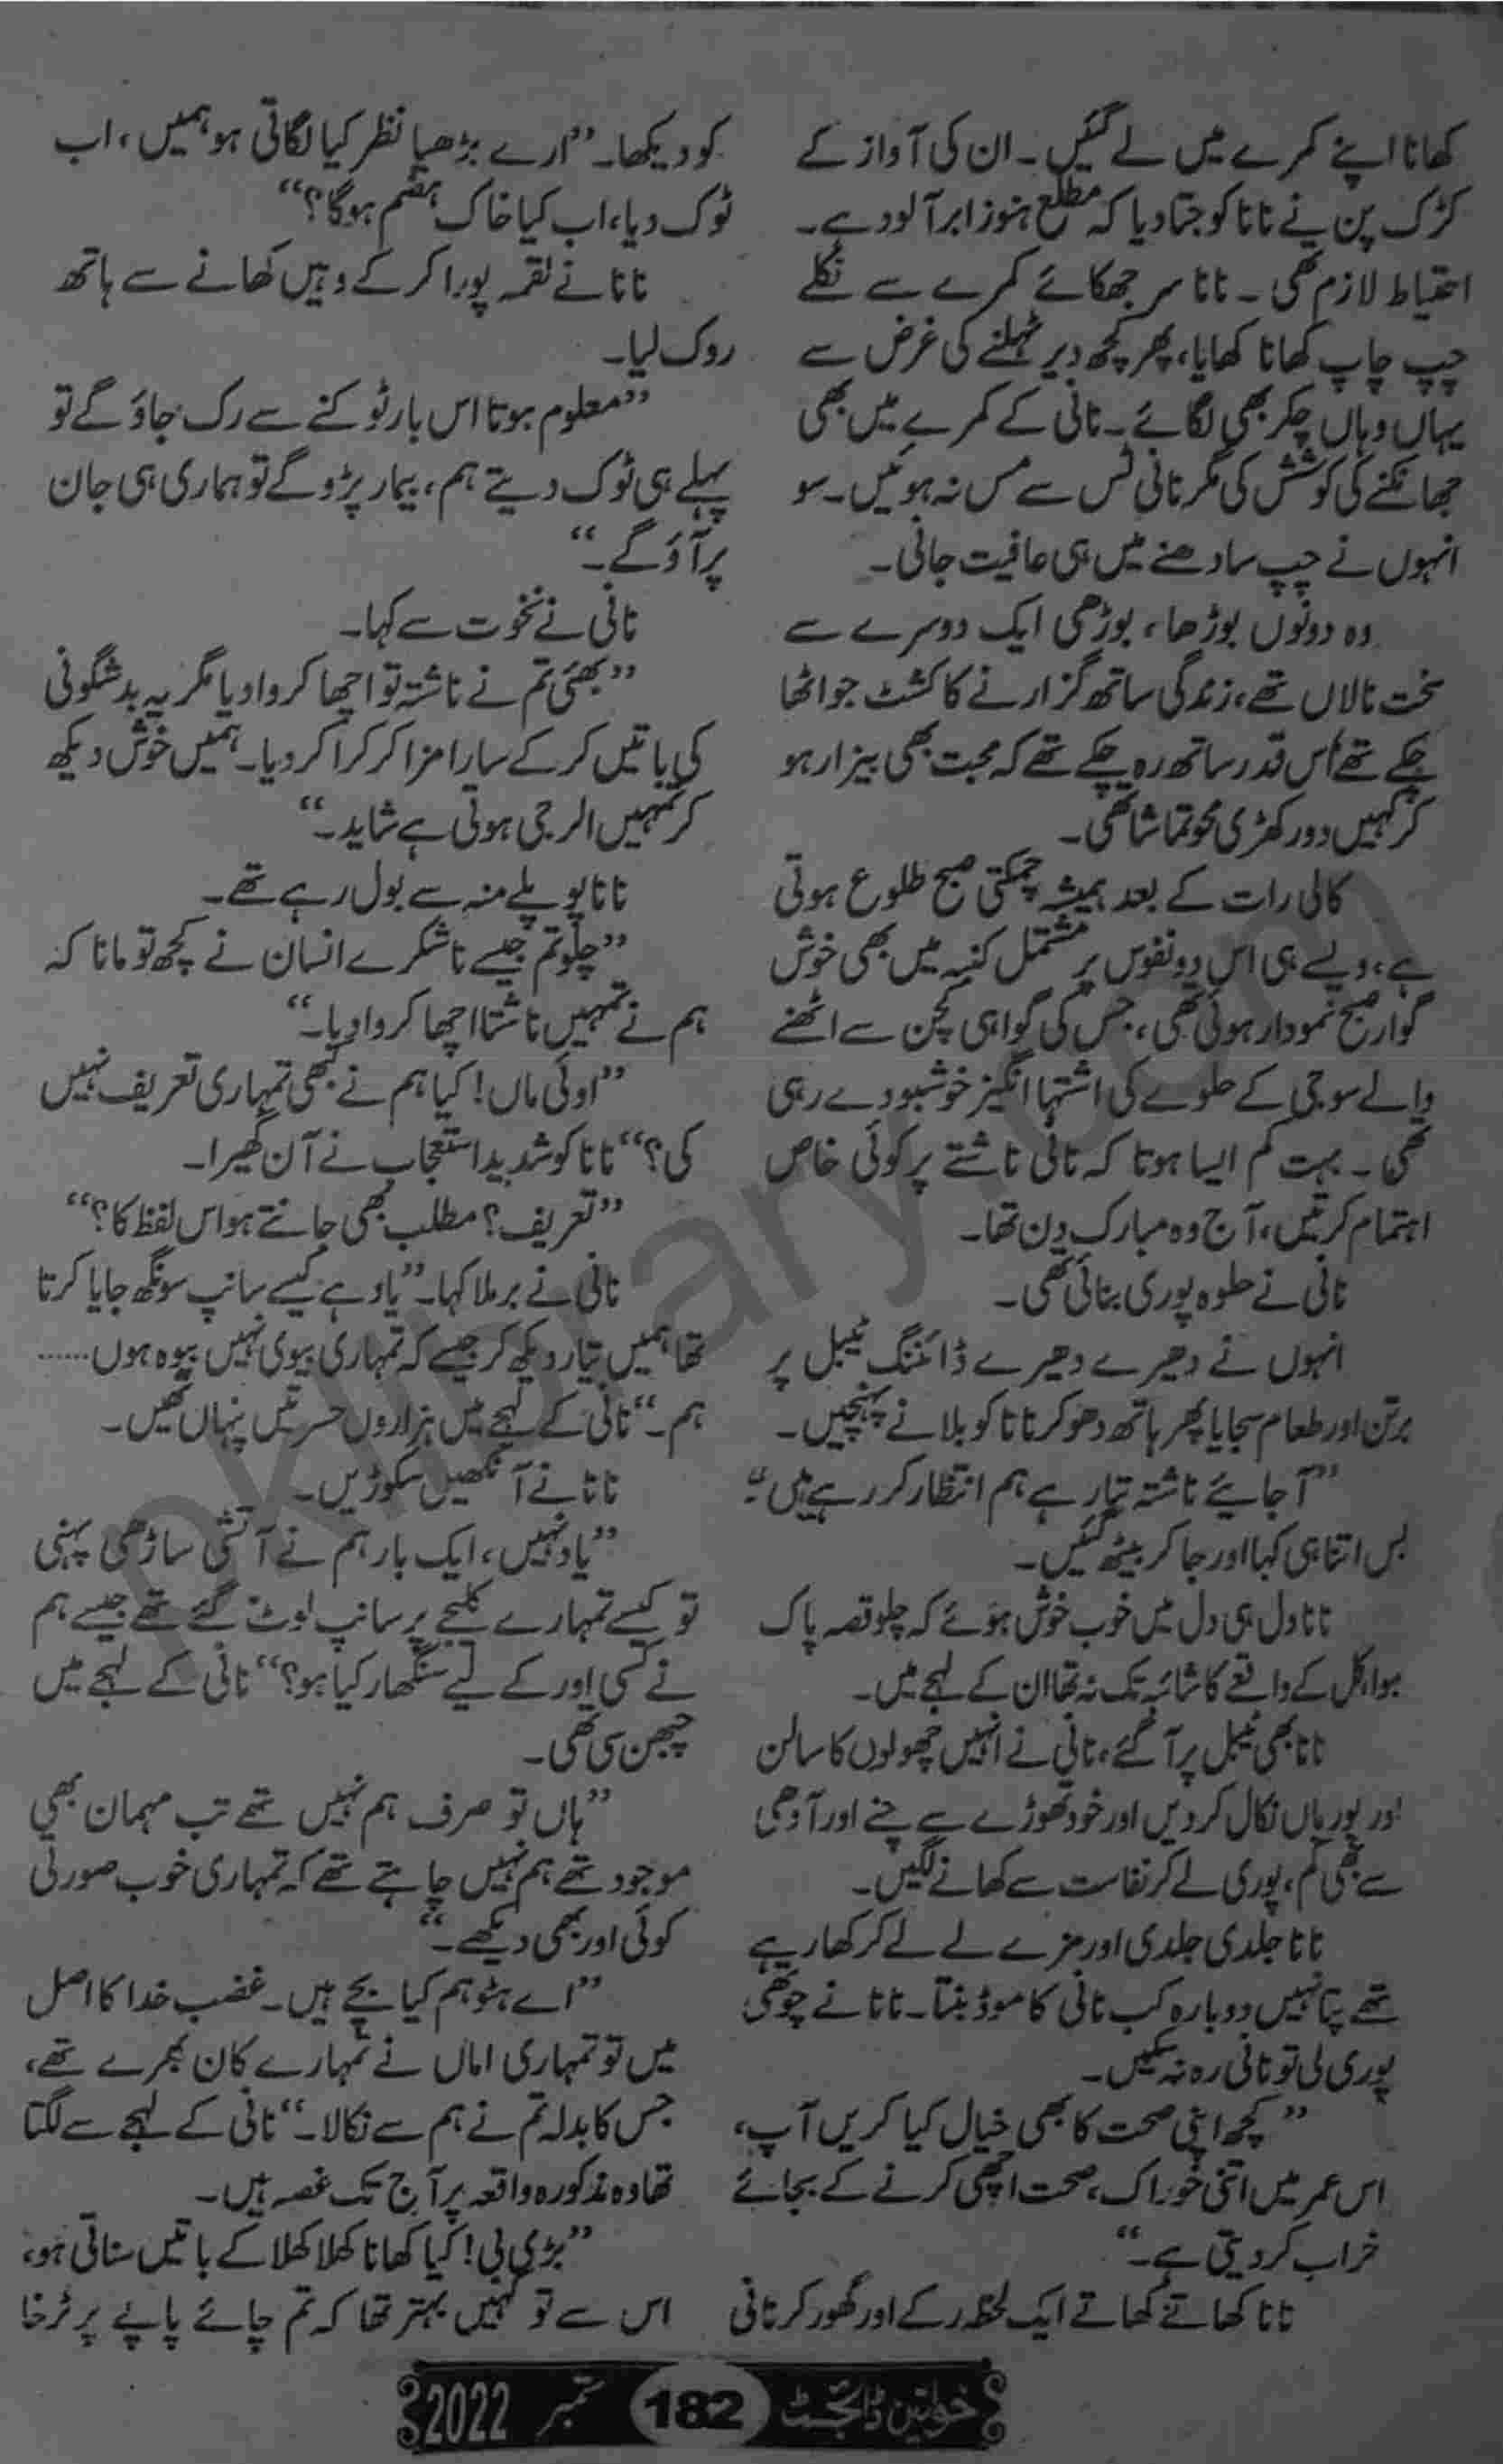 کھانا اپنے کمرے میں لے گئیں۔ ان کی آواز کے
کڑک پن نے نانا کو جتا دیا کہ مطلع ہنوز ابر آلود ہے۔
احتیاط لازم تھی۔ نانا سر جھکائے کمرے سے نکلے
چپ چاپ کھانا کھایا، پھر کچھ دیر ٹہلنے کی غرض سے
یہاں وہاں چکر بھی لگائے۔ نانی کے کمرے میں بھی
جھانکنے کی کوشش کی مگر نانی ٹس سے مس نہ ہوئیں۔ سو
انہوں نے چپ سادھنے میں ہی عافیت جانی۔
وہ دونوں بوڑھا، بوڑھی ایک دوسرے سے
سخت نالاں تھے، زندگی ساتھ گزارنے کا کشٹ جو اٹھا
چکے تھے اس قدر ساتھ رہ چکے تھے کہ محبت بھی بیزار ہو
کر کہیں دور کھڑی محو تماشا تھی۔
کالی رات کے بعد ہمیشہ چمکتی صبح طلوع ہوتی
ہے، ویسے ہی اس دو نفوس پر مشتمل کنبہ میں بھی خوش
گوار صبح نمودار ہوئی تھی، جس کی گواہی کچن سے اٹھنے
والے سوجی کے حلوے کی اشتہا انگیز خوشبو دے رہی
تھی۔ بہت کم ایسا ہوتا کہ نانی ناشتے پر کوئی خاص
اہتمام کرتیں، آج وہ مبارک دن تھا۔
نانی نے حلوہ پوری بنائی تھی۔
انہوں نے دھیرے دھیرے ڈائننگ ٹیبل پر
برتن اور طعام سجایا پھر ہاتھ دھو کر نانا کو بلانے پہنچیں۔
”آ جایئے ناشتہ تیار ہے ہم انتظار کر رہے ہیں“
بس اتنا ہی کہا اور جا کر بیٹھ گئیں۔
نانا دل ہی دل میں خوب خوش ہوئے کہ چلو قصہ پاک
ہوا، کل کے واقعے کا شائبہ تک نہ تھا ان کے لہجے میں۔
نانا بھی ٹیبل پر آ گئے، نانی نے انہیں چھولوں کا سالن
اور پوریاں نکال کر دیں اور خود تھوڑے سے چنے اور آدھی
سے بھی کم، پوری لے کر نفاست سے کھانے لگیں۔
نانا جلدی جلدی اور مزے لے لے کر کھا رہے
تھے پتا نہیں دوبارہ کب نانی کا موڈ بنتا۔ نانا نے چوتھی
پوری لی تو نانی رہ نہ سکیں۔
”کچھ اپنی صحت کا بھی خیال کیا کریں آپ،
اس عمر میں اتنی خوراک، صحت اچھی کرنے کے بجائے
خراب کر دیتی ہے۔“
نانا کھاتے کھاتے ایک لحظہ رکے اور گھور کر نانی
کو دیکھا۔ ”ارے بڑھیا نظر کیا لگاتی ہو ہمیں، اب
ٹوک دیا، اب کیا خاک ہضم ہوگا؟“
نانا نے لقمہ پورا کر کے وہیں کھانے سے ہاتھ
روک لیا۔
”معلوم ہوتا اس بار ٹوکنے سے رک جاؤ گے تو
پہلے ہی ٹوک دیتے ہم، بیمار پڑو گے تو ہماری ہی جان
پر آؤ گے۔“
نانی نے نخوت سے کہا۔
”بھئی تم نے ناشتہ تو اچھا کروا دیا مگر یہ بدشگونی
کی باتیں کر کے سارا مزا کرکرا کر دیا۔ ہمیں خوش دیکھ
کر تمہیں الرجی ہوتی ہے شاید۔“
نانا پوپلے منہ سے بول رہے تھے۔
”چلو تم جیسے ناشکرے انسان نے کچھ تو مانا کہ
ہم نے تمہیں ناشتا اچھا کروا دیا۔“
”اوئی ماں! کیا ہم نے کبھی تمہاری تعریف نہیں
کی؟“ نانا کو شدید استعجاب نے آن گھیرا۔
”تعریف؟ مطلب بھی جانتے ہو اس لفظ کا؟“
نانی نے برملا کہا۔ ”یاد ہے کیسے سانپ سونگھ جایا کرتا
تھا ہمیں تیار دیکھ کر جیسے کہ تمہاری بیوی نہیں بیوہ ہوں......
ہم۔“ نانی کے لہجے میں ہزاروں حسرتیں پنہاں تھیں۔
نانا نے آنکھیں سکوڑیں۔
”یاد نہیں، ایک بار ہم نے آتشی ساڑھی پہنی
تو کیسے تمہارے کلیجے پر سانپ لوٹ گئے تھے جیسے ہم
نے کسی اور کے لیے سنگھار کیا ہو؟“ نانی کے لہجے میں
چبھن سی تھی۔
”ہاں تو صرف ہم نہیں تھے تب مہمان بھی
موجود تھے، ہم نہیں چاہتے تھے کہ تمہاری خوب صورتی
کوئی اور بھی دیکھے۔“
”اے ہٹو ہم کیا بچے ہیں۔ غضب خدا کا اصل
میں تو تمہاری اماں نے تمہارے کان بھرے تھے،
جس کا بدلہ تم نے ہم سے نکالا۔“ نانی کے لہجے سے لگتا
تھا وہ مذکورہ واقعہ پر آج تک غصہ ہیں۔
”بڑی بی! کیا کھانا کھلا کھلا کے باتیں سناتی ہو،
اس سے تو کہیں بہتر تھا کہ تم چائے پاپے پر ٹرخا
خواتین ڈائجسٹ 182 ستمبر 2022
pklibrary.com